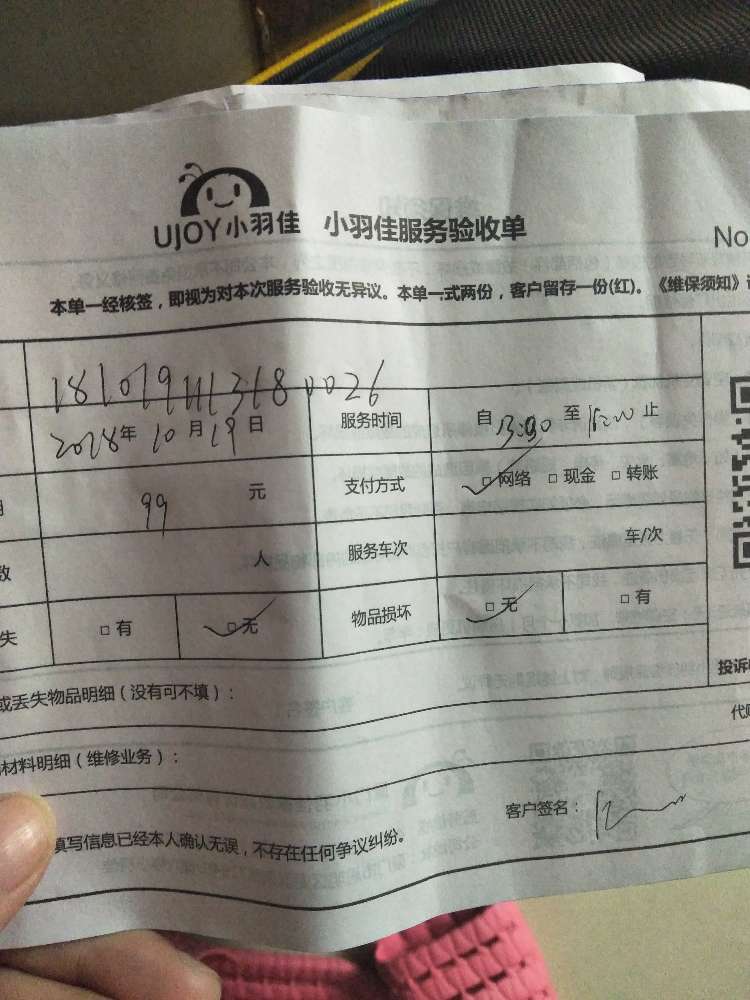 UJOY小羽佳 小羽佳服务验收单 No
本单一经核签，即视为对本次服务验收无异议。本单一式两份，客户留存一份(红)。《维保须知》
1810191113180026
2018年10月19日 服务时间 自13:00至15:00止
99元 支付方式 □网络 □现金 □转账
数 人 服务车次 车/次
失 □有 □无 物品损坏 □无 □有
投诉
或丢失物品明细（没有可不填）：
代
材料明细（维修业务）：
客户签名：
填写信息已经本人确认无误，不存在任何争议纠纷。